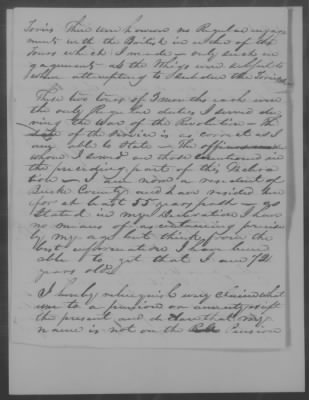 Tories. There were however no Regular engage
ments with the British in either of the
Tours which I made – only such en
gagements as the Whigs were subject to
when attempting to subdue the Tories
These two tours of 3 months each were
the only Regular duties I served du
ring the War of the Revolution – The
of the service is as correct as I
am able to State – The officers
whom I served are those mentioned in
the preceding part of this Declara
tion – I am now a resident of
Burke County and have resided here
for at least 55 years past – as
Stated in my Declaration I have
no means of ascertaining precise
ly my age but think from the
best information I have been
able to get that I am 72
years old
I hereby relinquish every claim what
ever to a pension or annuity except
the present and declare that my
name is not on the Pension